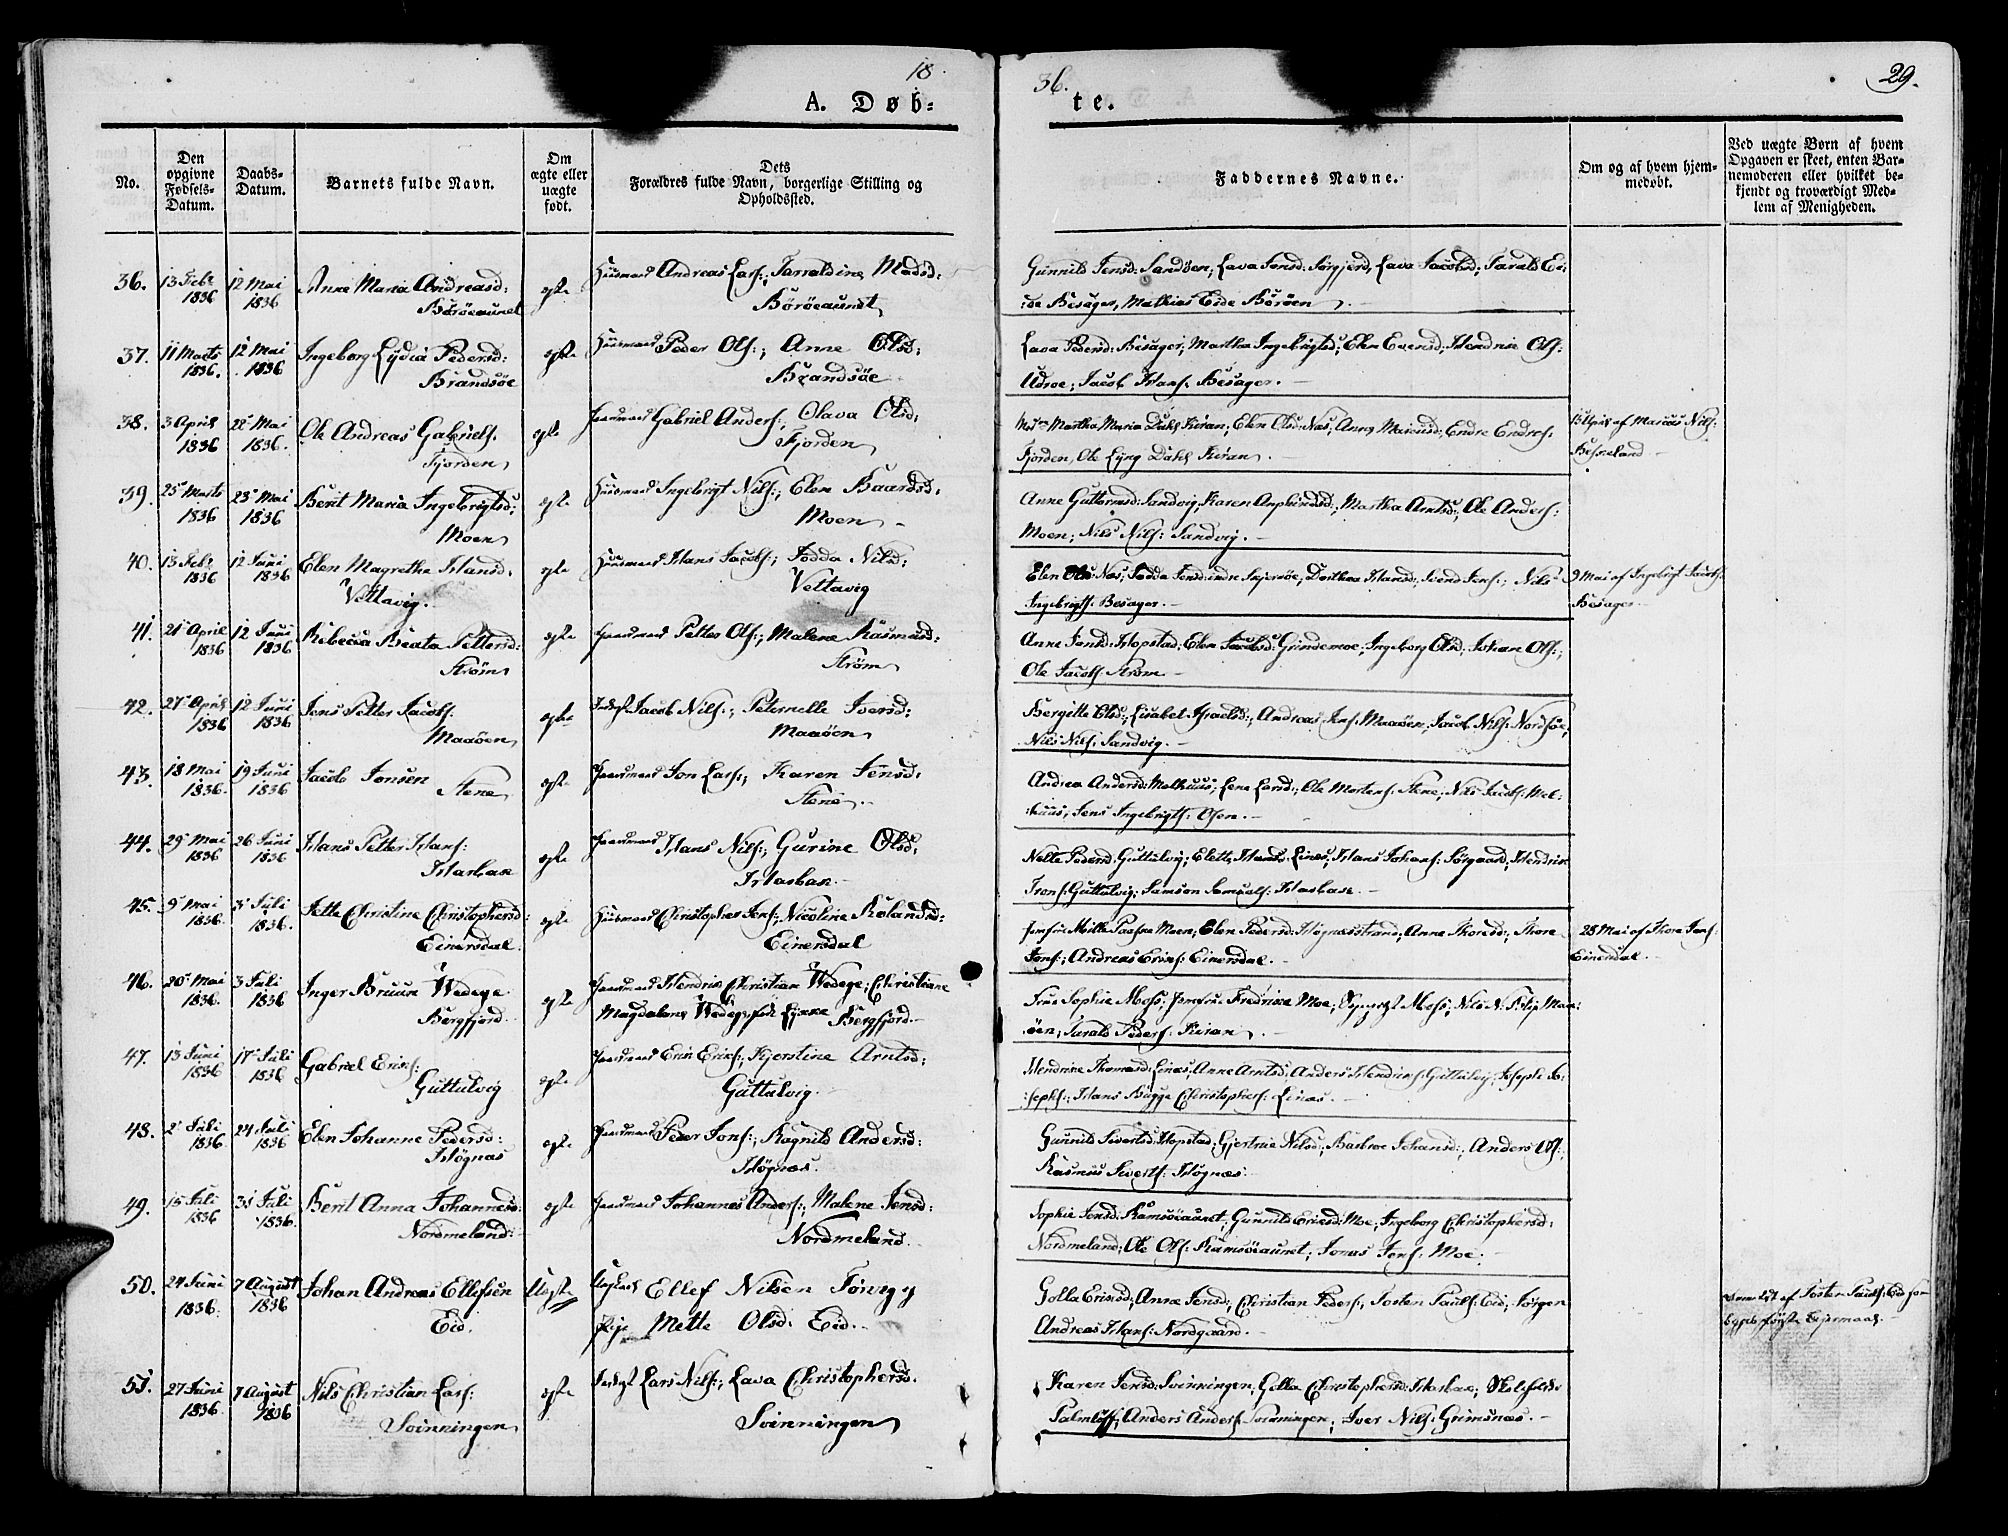 18
36.
29.
A. Døb=
te.
No.
Den opgivne Fødsels-Datum.
Daabs-Datum.
Barnets fulde Navn.
Om ægte eller uægte født.
Dets Forældres fulde Navn, borgerlige Stilling og Opholdssted.
Faddernes Navne.
Om og af hvem hjemmedøbt.
Ved uægte Børn af hvem Opgaven er skeet, enten Barnemoderen eller hvilket bekjendt og troværdigt Medlem af Menigheden.
36. 13 Febr 1836 12 Mai 1836 Anne Maria Andreasd: Børøeaunet egte Huusmand Andreas Lars:, Tarraldine Madsd: Børøeaunet
Gunnild Jensd: Sandøen; Lava Jonsd: Sørgjerd, Lava Jacobsd; Tarald Ei-
de Besager, Mathias Eide Børøen
37. 11 Marts 1836. 12 Mai 1836 Ingeborg Lydia Pedersd: Brandsøe egte Huusmand Peder Ols:, Anne Olsd: Brandsøe
Lava Pedersd: Besager; Martha Ingebrigtsd; Elen Evensd; Hendrik Ols:
Udroe; Jacob Hans: Besager.
38. 3 April 1836 22 Mai 1836. Ole Andreas Gabriels: Fjorden egte Gaardmand Gabriel Anders:, Olava Olsd: Fjorden
Martha Maria Dahl Kiran; Elen Olsd: Næs; Anne Mariusd; Endre Endres:
Fjorden, Ole Lyng Dahl Kiran.
13 April af Marcus Nils:
Besseland
39. 25 Marts 1836 23 Mai 1836 Berit Maria Ingebrigtsd: Moen egte Huusmand Ingebrigt Nils:, Elen Baardsd: Moen
Anne Guttormsd: Sandvig, Karen Amundsd; Martha Arntsd; Ole Anders:
Moen; Nils Nils: Sandvig.
40. 13 Febr 1836 12 Juni 1836 Elen Magretha Hansd: Vettavig. egte Huusmand Hans Jacobs:, Jodda Nilsd: Vettavig
Elen Olsd: Næs; Jodda Jensd: indre Skjervøe, Dorthea Hansd; Svend Jens:; Nils
Ingebrigts: Besager.
9 Mai af Ingebrigt Jacobs:
Besager
41. 21 April 1836 12 Juni 1836 Rebecca Beata Pettersd: Strøm egte Gaardmand Petter Ols:, Malene Rasmusd: Strøm
Anne Jonsd: Hopstad; Elen Jacobsd: Grindemoe; Ingeborg Olsd; Johan Ols:;
Ole Jacobs: Strøm
42. 27 April 1836 12 Juni 1836 Jens Petter Jacobs: Maaøen egte Inderst Jacob Nils:, Peternelle Iversd: Maaøen
Bergitte Olsd:; Lisabet Israelsd:; Andreas Jens: Maaøen; Jacob Nils: Nordsøe;
Nils Nils: Sandvig.
43. 18 Mai 1836. 19 Juni 1836 Jacob Jonsen Stene egte Gaardmand Jon Lars:, Karen Jensd: Stene
Andrea Andersd: Melhuus; Lene Larsd:, Ole Mortens: Stene; Nils Jacobs: Mel-
huus; Jens Ingebrigts: Osen.
44. 29 Mai 1836 26 Juni 1836 Hans Petter Hans: Harbak egte Gaardmand Hans Nils:, Gurine Olsd: Harbak
Nelle Pedersd: Guttulvig; Elett Hansd: Linæs; Hans Johans: Sørgaard; Hendrik
Trons: Guttulvig; Samson Samuels: Harbak.
45. 9 Mai 1836. 3 Juli 1836. Jette Christine Christophersd: Einersdal egte Huusmand Christopher Jens:, Nicoline Rolandsd: Einersdal
Jomfru Moen; Elen Pedersd: Høgnæsstrand; Anne Thoresd:; Thore
Jons:; Andreas Erics: Einersdal.
28 Mai af Thore Jons:
Einersdal
46. 20 Mai 1836. 3 Juli 1836 Inger Bruun Wedege Bergfjord egte Gaardmand Hendric Christian Wedege; Christiane Magdalena Wedege født Lykke Bergfjord
Frue Sophie Moss; Jomfru Fredrikke Moe; Moss; Nils N. Maa-
øen; Tarald Peders: Kiran.
47. 13 Juni 1836 17 Juli 1836 Gabriel Erics: Guttulvig egte Gaardmand Eric Erics:, Kjerstine Arntsd: Guttulvig
Hendrine Thomasd: Linæs; Anne Arntsd; Anders Hendrics: Guttulvig; Joseph Jo-
sephs:; Hans Bugge Christophers: Linæs.
48. 2 Juli 1836 24 Juli 1836 Elen Johanne Pedersd: Høgnæs egte Gaardmand Peder Jons:, Ragnild Andersd: Høgnæs.
Gunnild Sivertsd: Hopstad; Gjertrue Nilsd; Barbroe Johansd; Anders Ols:
Rasmus Siverts: Høgnæs.
49. 15 Juli 1836 31 Juli 1836. Berit Anna Johannesd: Nordmeland egte Gaardmand Johannes Anders:, Malene Jensd: Nordmeland
Sophie Jensd: Ramsøeaunet; Gunnild Ericsd: Moe; Ingeborg Christophersd:
Nordmeland; Ole Ols: Ramsøeaunet; Jonas Jens: Moe.
50. 24 Juni 1836. 7 August 1836 Johan Andreas Ellefsen Eid. Uegte Ungkarl Ellef Nilsen
Pige Mette Olsd: Eid.
Golla Ericsd; Anne Jensd; Christian Peders:, Josten Pauls: Eid; Jørgen
Andreas Hans: Nordgaard.
af Josten Pauls: Eid for
begges første Leiermaal.
51. 27 Juni 1836. 7 August 1836 Nils Christian Lars: Svinningen egte Inderst Lars Nils:, Lava Christophersd. Svinningen
Karen Jensd: Svinningen; Golla Christophersd: Harbak;
Anders Anders: Svinningen; Iver Nils: Grimsnæs.